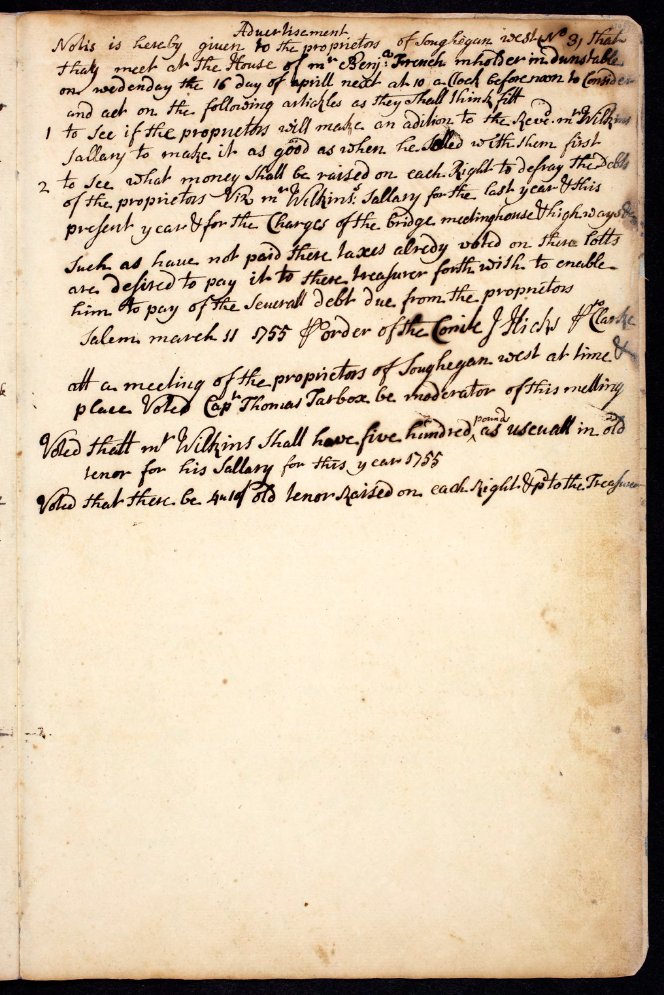 Advertisement
Notis is hereby given to the proprietors of Soughegan west No 3, that
thay meet at the House of mr Benja French inholder in dunstable
on wedenday the 16 day of aprill next at 10 a Clock before noon to Consider
and act on the following artickles as they Shall think fitt
1 to See if the proprietors will make an adition to the Revd mr Wilkins
Sallary to make it as good as when he Setled with them first
2 to See what money Shall be raised on each Right to defray the Debts
of the proprietors Viz mr Wilkins's Sallary for the last year & this
present year & for the Charges of the bridge meetinghouse & high ways &c
Such as have not paid there taxes alredy voted on there lotts
are desired to pay it to there treasurer forth with to enable
him to pay of the Severall debt due from the proprietors
Salem march 11 1755 pr order of the Comite J Hicks prto Clarke
att a meeting of the proprietors of Soughegan west at time &
place Voted Capt Thomas Tarbox be moderator of this meeting
Voted thatt mr Wilkins Shall have five hundred pound as useuall in old
tenor for his Sallary for this year 1755
Voted that there be old tenor Raised on each Right & pd to the Treasurer